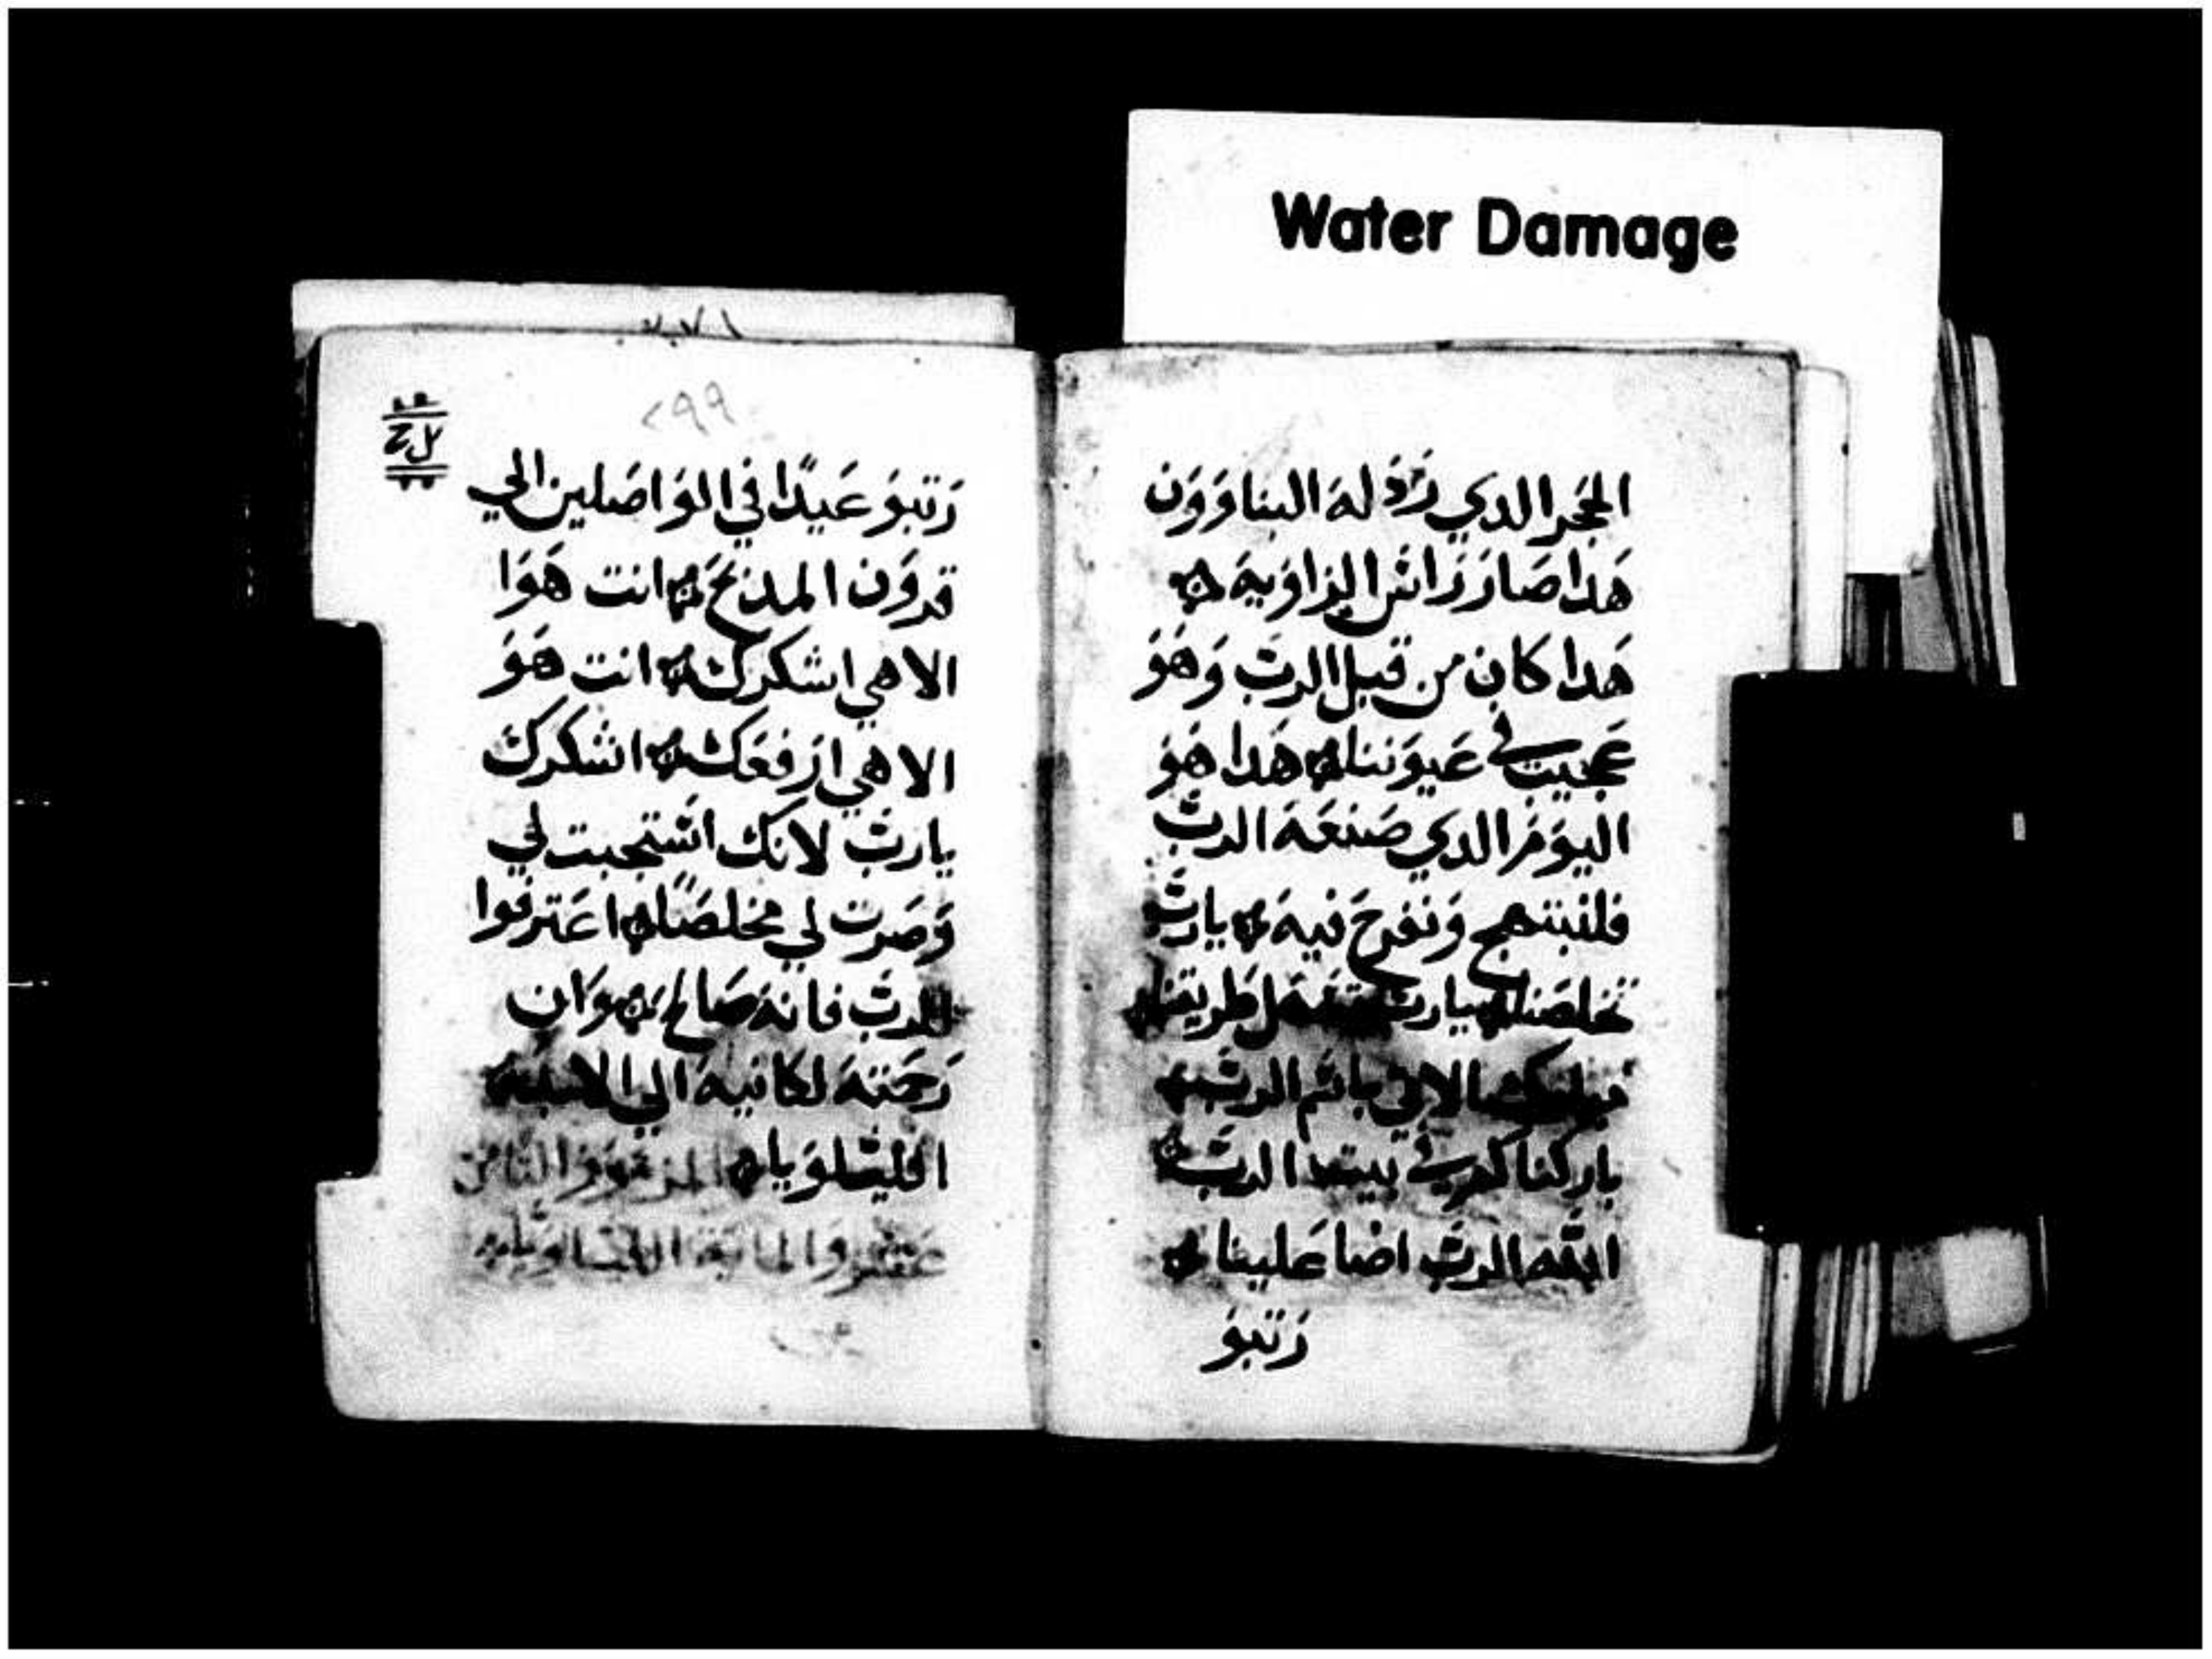 Water Damage
الحجر الدي رَذله البناوَون
هَدا صَار رَاس الزاوَيه
هَدا كان من قبل الربَ وَهوَ
عَجيب في عَيوَننا هَدا هوَ
اليوَمَ الدي صَنعَهَ الربَ
فلنبتهج وَنفرحَ فيه يارب
خلصَنا يارب طريقنا
الاتي باسم الربَ
باركناكم من بيت الربَ
الله الربَ اضا عَلينا
رَتبوَ
٢٩٩
رَتبوَ عَيدًا في الوَاصَلين الي
قروَن المذبحَ انت هَوَا
الاهي اشكرك انت هَوَ
الاهي ارَفعَك اشكرك
يارب لانك استجبت لي
وَصَرت لي مخلصَاً اعَترفوا
للربَ فانهَ صَالح وَان
رَحمتهَ لكانيهَ الي الابد
الليلوَيا المزموَر الثامن
عَشر وَالمايهَ الليلوَيا